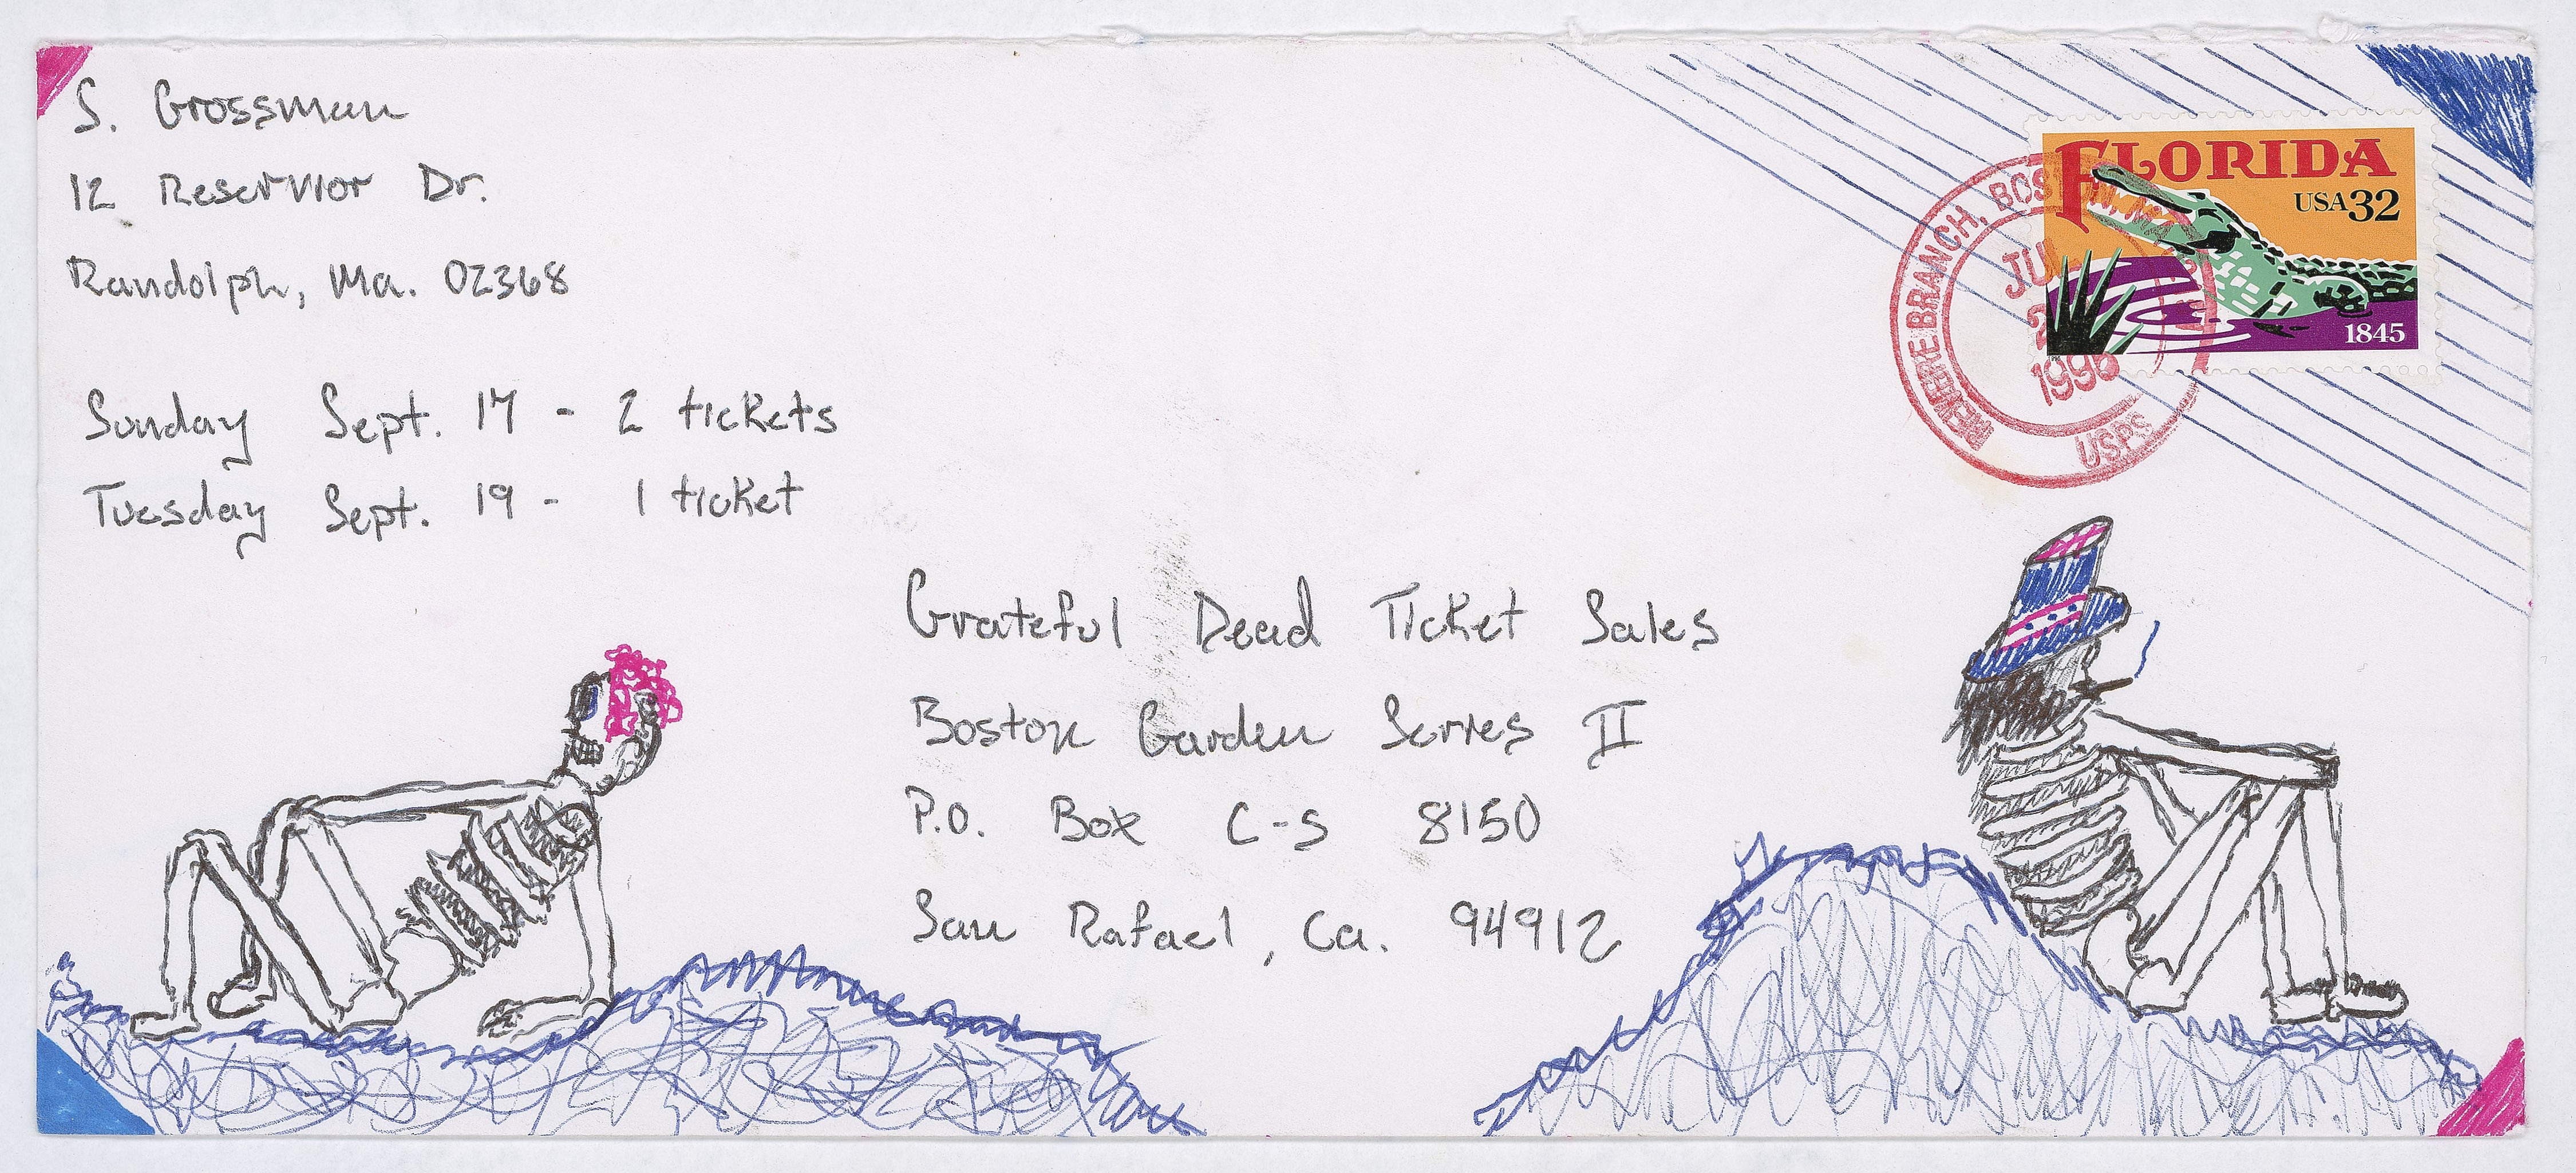 S. Grossman
12 Reservior Dr.
Randolph, Ma. 02368
Sunday Sept. 17 - 2 tickets
Tuesday Sept. 19 - 1 ticket
FLORIDA
USA 32
1845
REVERE BRANCH, BOS
JUL
USPS
Grateful Dead Ticket Sales
Boston Garden Series II
P.O. Box C-S 8150
San Rafael, Ca. 94912